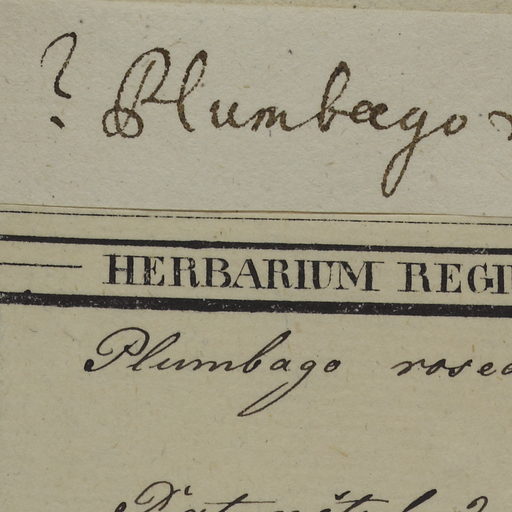 ? Plumbago
HERBARIUM REGI
Plumbago rosea